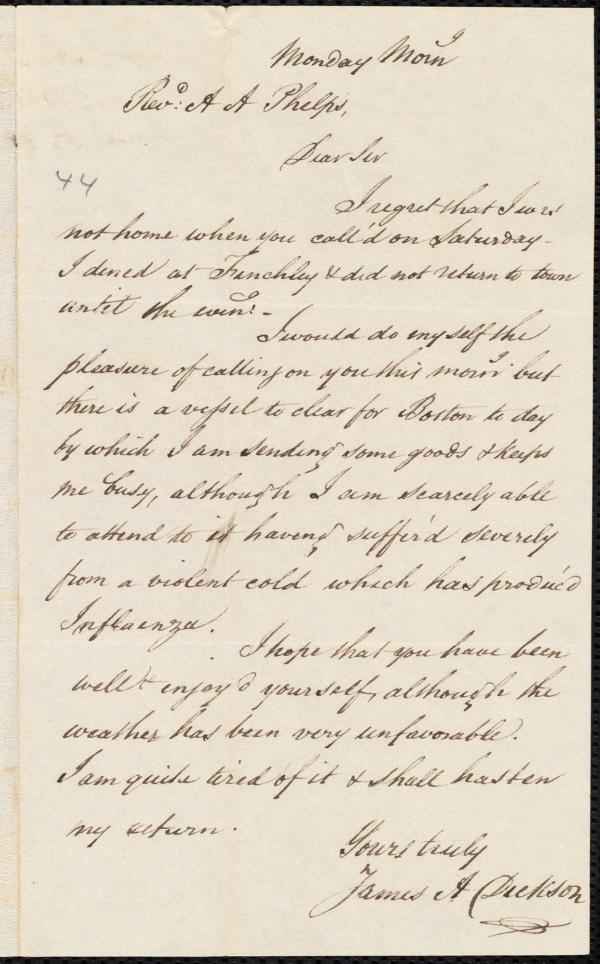 Monday Morng
Revd: A A Phelps,
Dear Sir
44
I regret that I was
not home when you call'd on Saturday -
I dined at Finchley & did not return to town
until the eveng: -
I would do myself the
pleasure of calling on you this morng but
there is a vessel to clear for Boston to day
by which I am sending some goods & keeps
me busy, although I am scarcely able
to attend to it having suffer'd severely
from a violent cold which has produc'd
Influenza.
I hope that you have been
well & enjoy'd yourself, although the
weather has been very unfavorable.
I am quite tired of it & shall hasten
my return.
Yours truly
James A Dickson